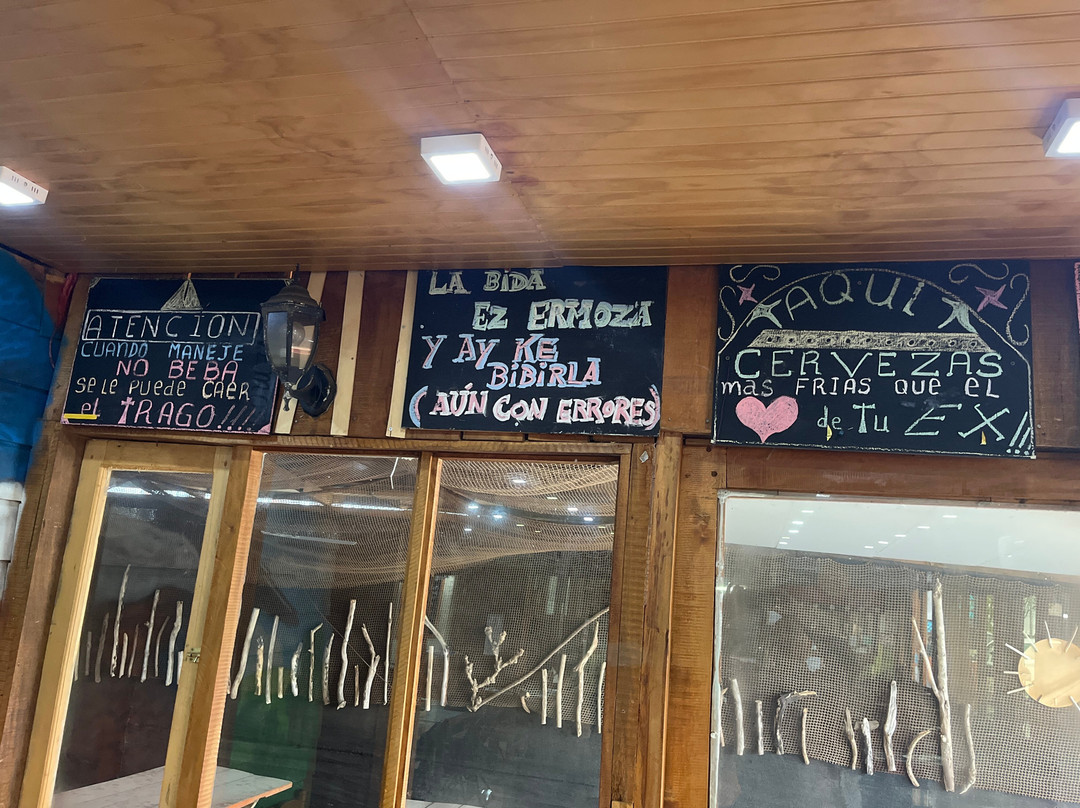 ATENCION
CUANDO MANEJE
NO BEBA
SE LE PUEDE CAER
el TRAGO!!!!
LA BIDA
EZ ERMOZA
Y AY KE
BIBIRLA
(AÚN CON ERRORES)
AQUI
CERVEZAS
mas FRIAS QUE EL
de TU EX!!